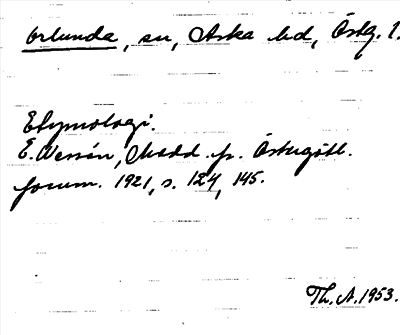 Orlunda, sn, Aska hd, Östg. l.
Etymologi.
E. Wessén, Medd. fr. Östergötl.
fornm. 1921, s. 124, 145.
Th. A. 1953.